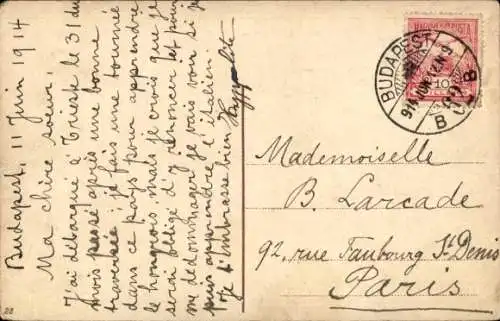 Budapest, 11 Juin 1914
Ma chère soeur,
J'ai débarqué à Trieste le 31 du
mois passé après une bonne
traversée; je fais une tournée
dans ce pays pour apprendre
le hongrois, mais je crois que je
serai obligé d'y renoncer et pour
me dédommager je vais voir si je
puis apprendre l'italien.
Je t'embrasse bien
Hippolyte
BUDAPEST
914 JUN. 12
B
10
Mademoiselle
B. Larcade
92, rue Faubourg St Denis
Paris
28